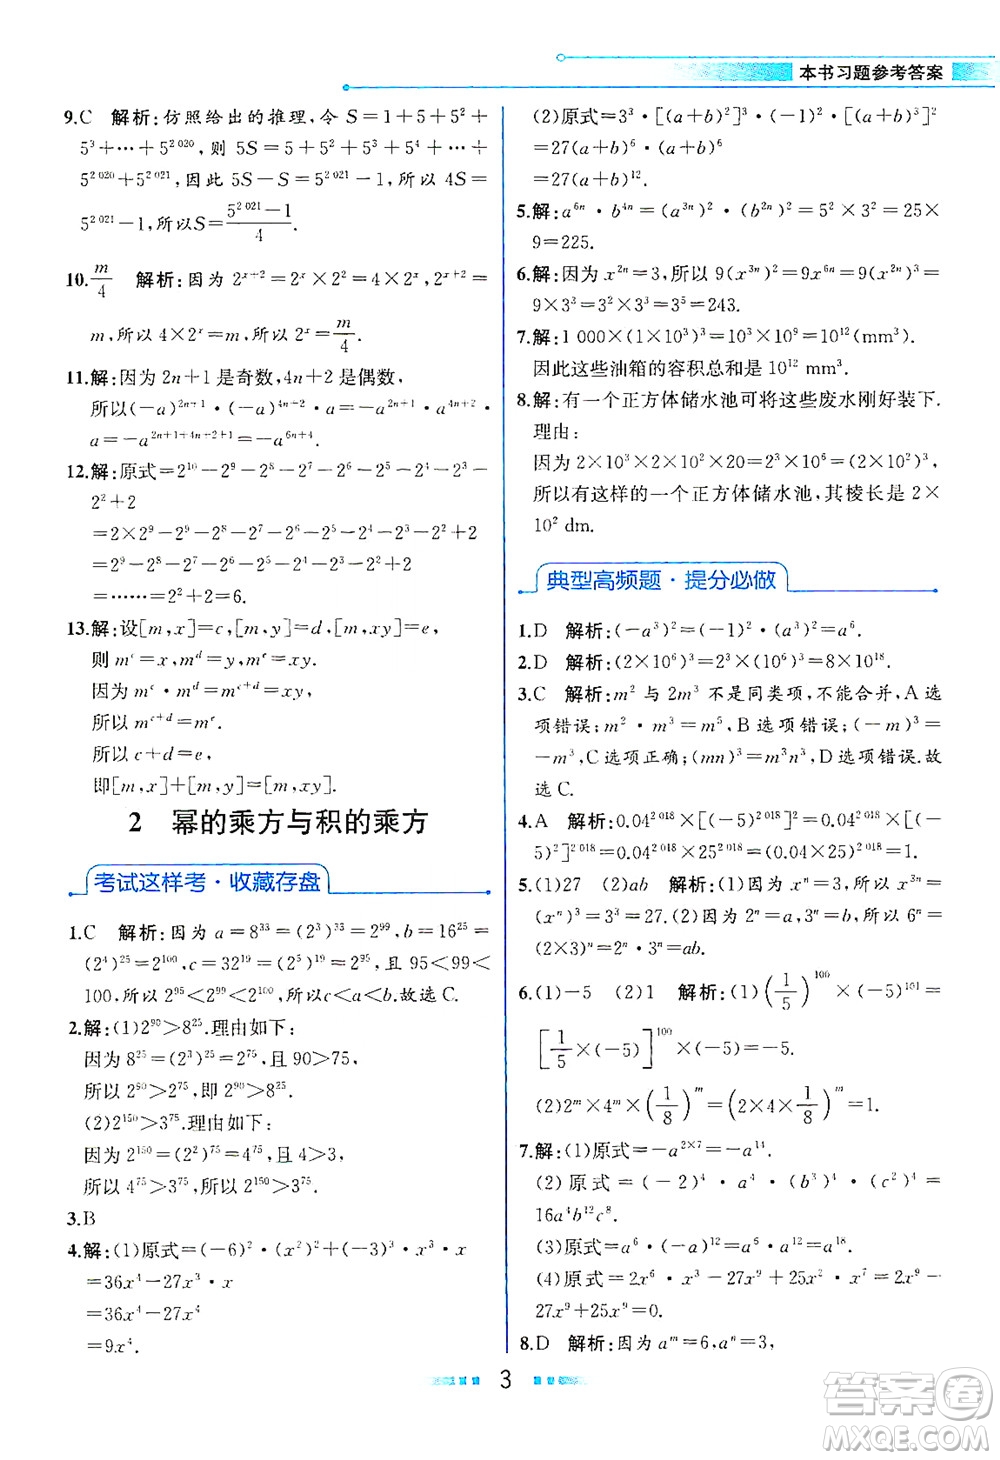 本书习题参考答案
9.C 解析:仿照给出的推理,令 S=1+5+5²+
5³+…+5²⁰²⁰,则 5S=5+5²+5³+5⁴+…+
5²⁰²⁰+5²⁰²¹,因此 5S-S=5²⁰²¹-1,所以 4S=
5²⁰²¹-1,所以S=(5²⁰²¹-1)/4.
10. m/4 解析:因为 2ˣ⁺²=2ˣ×2²=4×2ˣ,2ˣ⁺²=
m,所以 4×2ˣ=m,所以 2ˣ=m/4.
11.解:因为 2n+1 是奇数,4n+2 是偶数,
所以(-a)²ⁿ⁺¹·(-a)⁴ⁿ⁺²·a=-a²ⁿ⁺¹·a⁴ⁿ⁺²·
a=-a²ⁿ⁺¹⁺⁴ⁿ⁺²⁺¹=-a⁶ⁿ⁺⁴.
12.解:原式=2¹⁰-2⁹-2⁸-2⁷-2⁶-2⁵-2⁴-2³-
2²+2
=2×2⁹-2⁹-2⁸-2⁷-2⁶-2⁵-2⁴-2³-2²+2
=2⁹-2⁸-2⁷-2⁶-2⁵-2⁴-2³-2²+2
=……=2²+2=6.
13.解:设[m,x]=c,[m,y]=d,[m,xy]=e,
则 mᶜ=x,mᵈ=y,mᵉ=xy,
因为 mᶜ·mᵈ=mᶜ⁺ᵈ=xy,
所以 mᶜ⁺ᵈ=mᵉ.
所以 c+d=e,
即[m,x]+[m,y]=[m,xy].
2 幂的乘方与积的乘方
考试这样考·收藏存盘
1.C 解析:因为 a=8³³=(2³)³³=2⁹⁹,b=16²⁵=
(2⁴)²⁵=2¹⁰⁰,c=32¹⁹=(2⁵)¹⁹=2⁹⁵,且 95<99<
100,所以 2⁹⁵<2⁹⁹<2¹⁰⁰,所以c<a<b.故选 C.
2.解:(1)2⁹⁰>8²⁵.理由如下:
因为 8²⁵=(2³)²⁵=2⁷⁵,且 90>75,
所以 2⁹⁰>2⁷⁵,即 2⁹⁰>8²⁵.
(2)2¹⁵⁰>3⁷⁵.理由如下:
因为 2¹⁵⁰=(2²)⁷⁵=4⁷⁵,且 4>3,
所以 4⁷⁵>3⁷⁵,所以 2¹⁵⁰>3⁷⁵.
3.B
4.解:(1)原式=(-6)²·(x²)²+(-3)³·x³·x
=36x⁴-27x³·x
=36x⁴-27x⁴
=9x⁴.
(2)原式=3³·[(a+b)²]³·(-1)²·[(a+b)³]²
=27(a+b)⁶·(a+b)⁶
=27(a+b)¹².
5.解:a⁶ⁿ·b⁴ⁿ=(a³ⁿ)²·(b²ⁿ)²=5²×3²=25×
9=225.
6.解:因为 x²ⁿ=3,所以 9(x³ⁿ)²=9x⁶ⁿ=9(x²ⁿ)³=
9×3³=3²×3³=3⁵=243.
7.解:1 000×(1×10³)³=10³×10⁹=10¹²(mm³).
因此这些油箱的容积总和是 10¹² mm³.
8.解:有一个正方体储水池可将这些废水刚好装下.
理由:
因为 2×10³×10×2×20=2³×10⁶=(2×10²)³,
所以有这样的一个正方体储水池,其棱长是 2×
10² dm.
典型高频题·提分必做
1.D 解析:(-a³)²=(-1)²·(a³)²=a⁶.
2.D 解析:(2×10⁶)³=2³×(10⁶)³=8×10¹⁸.
3.C 解析:m² 与 2m³ 不是同类项,不能合并,A 选
项错误;m²·m³=m⁵,B 选项错误;(-m)³=
-m³,C 选项正确;(mn)³=m³n³,D 选项错误.故
选 C.
4.A 解析:0.04²⁰¹⁸×[(-5)²⁰¹⁸]²=0.04²⁰¹⁸×[(-
5)²]²⁰¹⁸=0.04²⁰¹⁸×25²⁰¹⁸=(0.04×25)²⁰¹⁸=1.
5.(1)27 (2)ab 解析:(1)因为 xⁿ=3,所以 x³ⁿ=
(xⁿ)³=3³=27.(2)因为 2ⁿ=a,3ⁿ=b,所以 6ⁿ=
(2×3)ⁿ=2ⁿ×3ⁿ=ab.
6.(1)-5 (2)1 解析:(1)(1/5)¹⁰⁰×(-5)¹⁰¹=
[1/5×(-5)]¹⁰⁰×(-5)=-5.
(2)2ᵐ×4ᵐ×(1/8)ᵐ=(2×4×1/8)ᵐ=1.
7.解:(1)原式=-a²ˣ⁷=-a¹⁴.
(2)原式=(-2)⁴·a⁴·(b³)⁴·(c²)⁴=
16a⁴b¹²c⁸.
(3)原式=a⁶·(-a)¹²=a⁶·a¹²=a¹⁸.
(4)原式=2x⁶·x³-27x⁹+25x²·x⁷=2x⁹-
27x⁹+25x⁹=0.
8.D 解析:因为 aᵐ=6,aⁿ=3,
3
答案圈
MXQE.COM